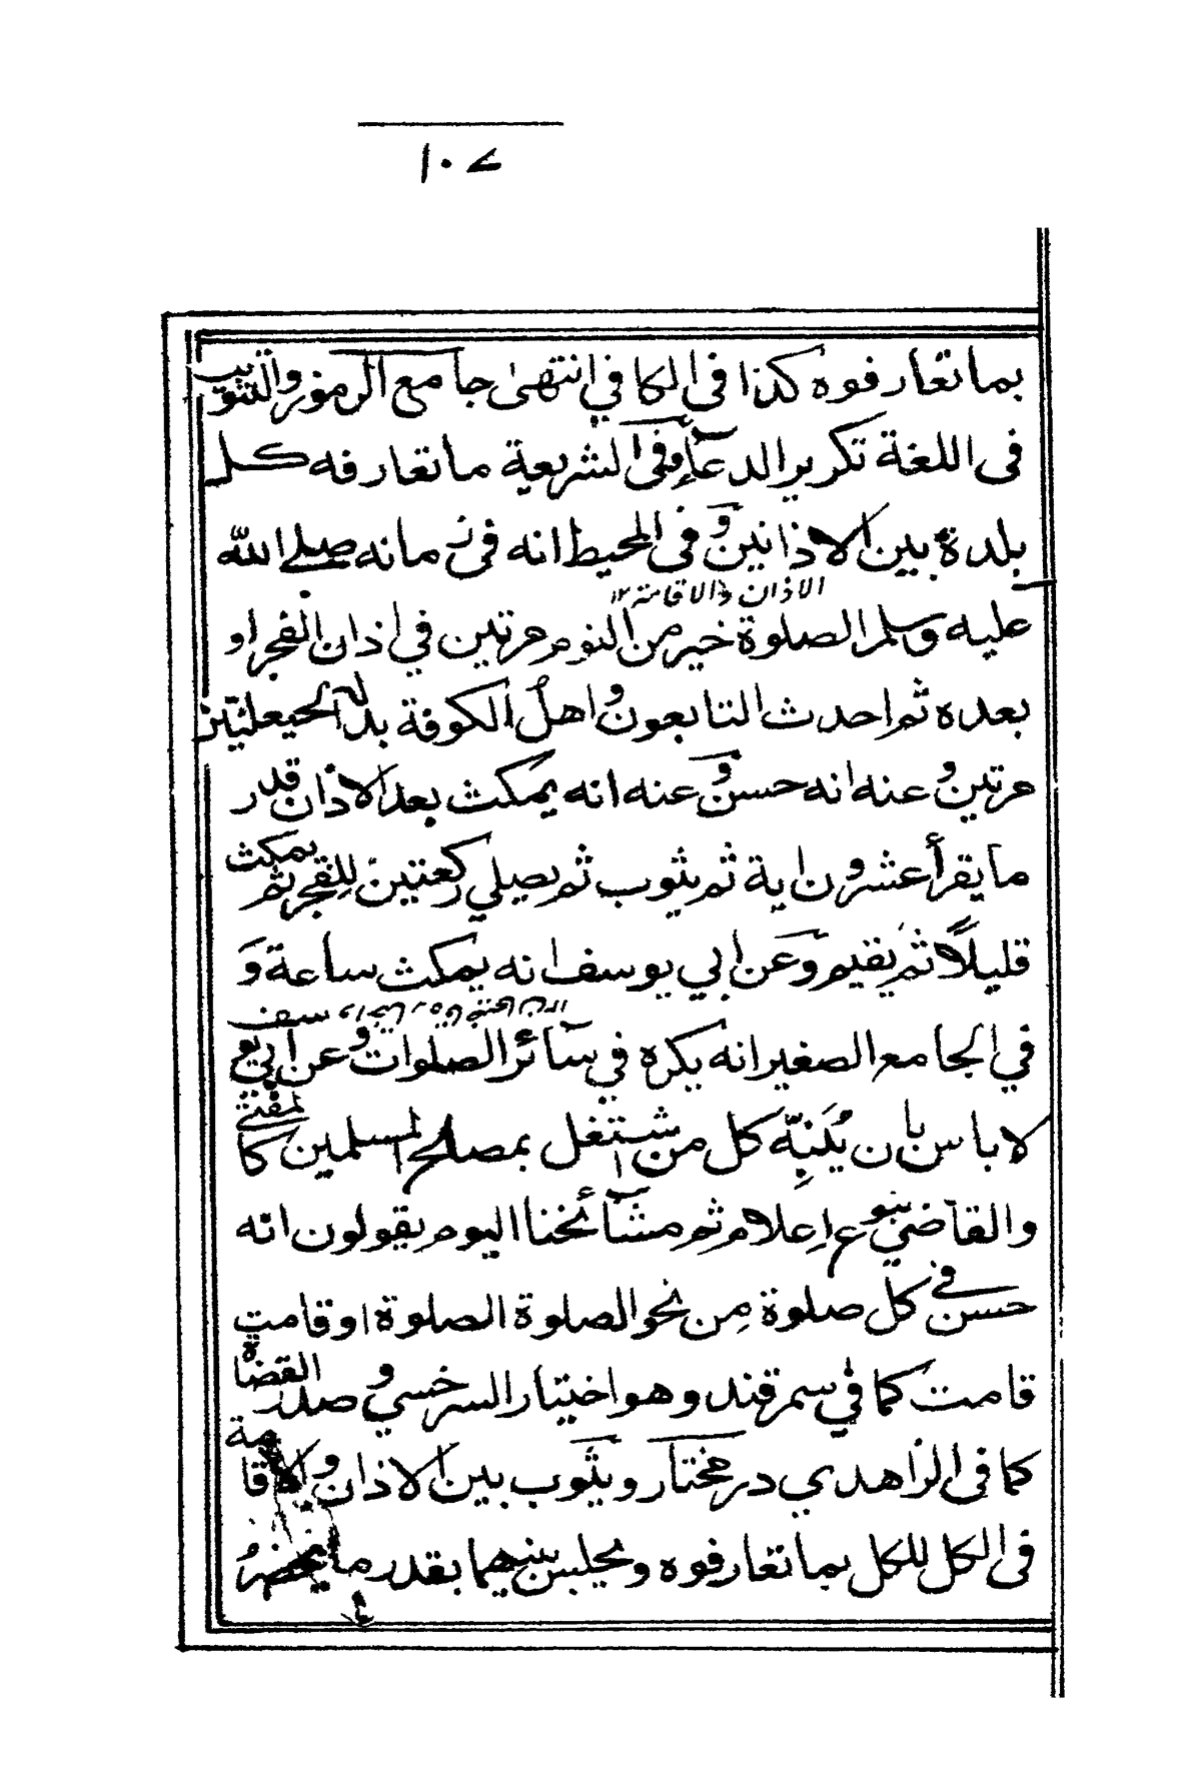 ١٠٧
بما تعارفوه كذا فى الكافي انتهىٰ جامع الرموز والتثويب
فى اللغة تكرير الدعآء وفى الشريعة ما تعارفه كل
بلدة بين الاذانين و فى المحيط انه فى زمانه صلے الله
الاذان والاقامة ١٢
عليه وسلم الصلوة خير من النوم مرتين في اذان الفجر او
بعده ثم احدث التابعون و اهل الكوفة بدله الحيعلتين
مرتين و عنه انه حسن و عنه انه يمكث بعد الاذان قدر
ما يقرأ عشرون اية ثم يثوب ثم يصلي ركعتين للفجر ثم يمكث
قليلًا ثم يقيم وعن ابي يوسف انه يمكث ساعة وَ
في الجامع الصغير انه يكره في سآئر الصلوات و عن ابي يوسف
لا باس بان يُنَبِّه كل من اشتغل بمصالح المسلمين كالمفتي
والقاضي بنوع اِعلام ثم مشآئخنا اليوم يقولون انه
حسن في كل صلوة مِن نحو الصلوة الصلوة او قامت
قامت كما في سمرقند وهو اختيار السرخسي و صدر القضاة
كما فى الزاهدي در مختار ويثوب بين الاذان و الاقامة
فى الكل للكل بما تعارفوه ويجلس بينهما بقدر ما يحضرُ